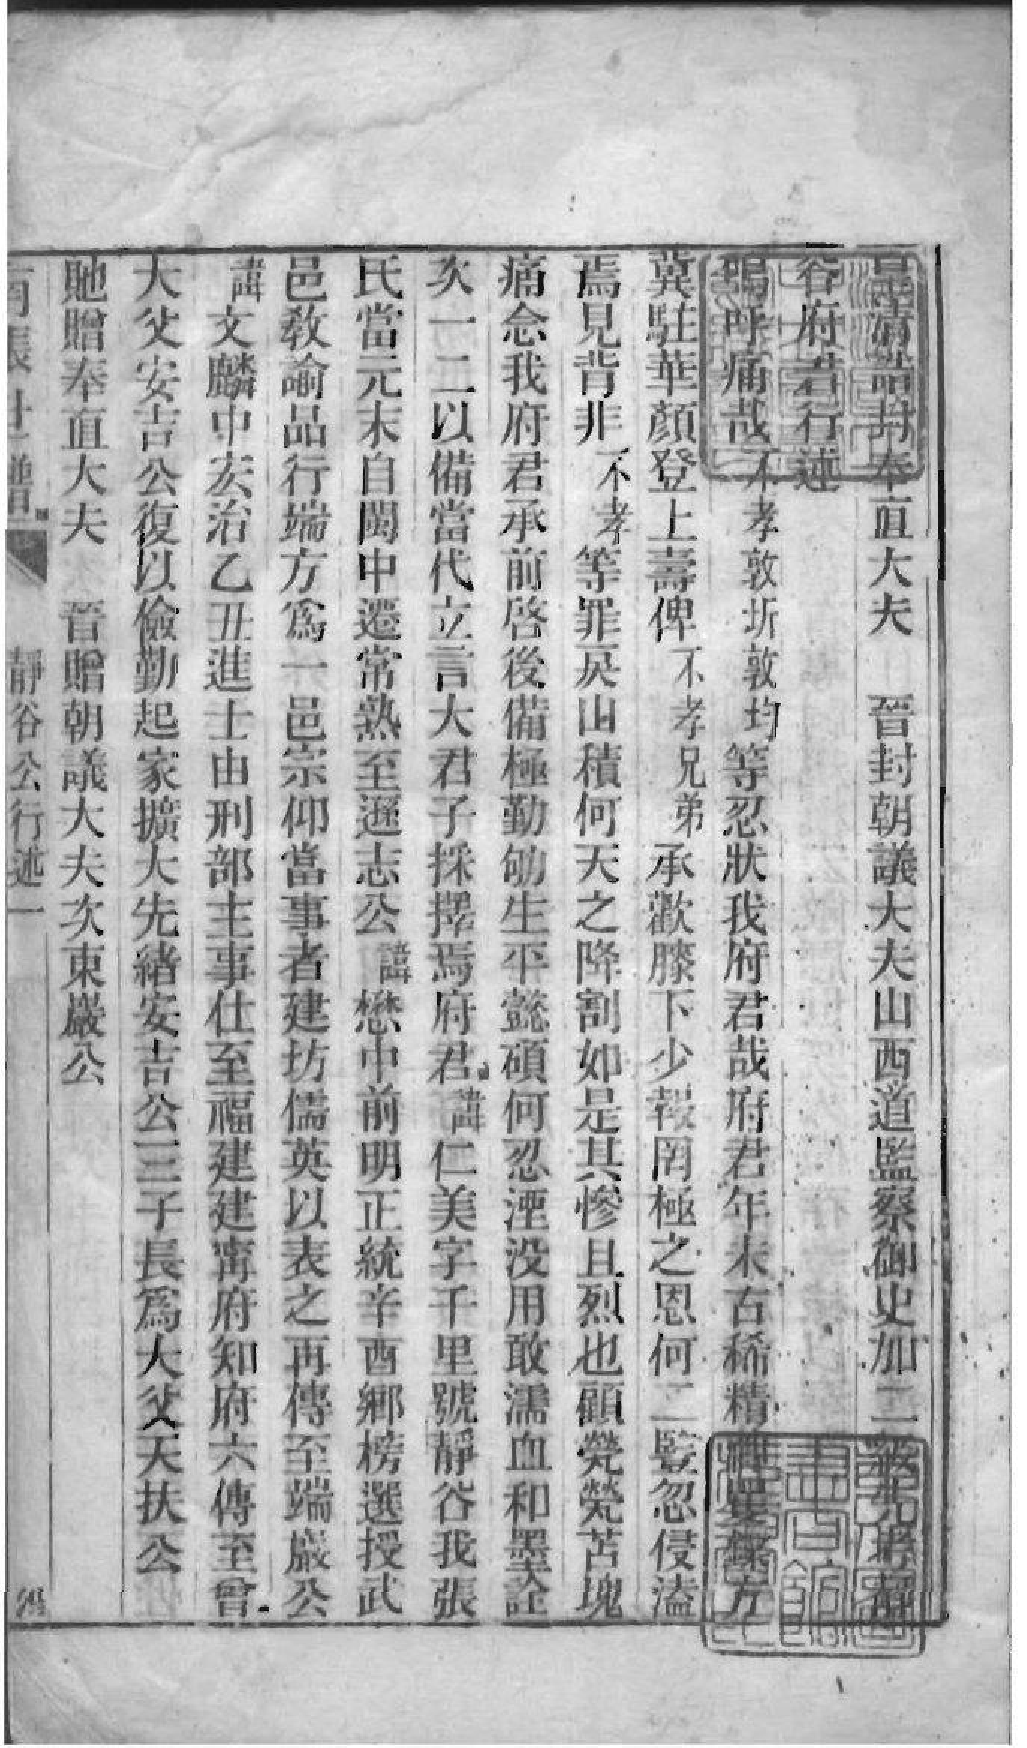 皇清誥封奉直大夫 晉封朝議大夫山西道監察御史加二級先考靜
谷府君行述
嗚呼痛哉不孝敦圻敦均等忍狀我府君哉府君年未古稀精神曼鑠方
冀駐華顏登上壽俾不孝兄弟承歡膝下少報罔極之恩何二豎忽侵溘
焉見背非不孝等罪戾山積何天之降割如是其慘且烈也顧煢煢苫塊
痛念我府君承前啓後備極勤劬生平懿碩何忍湮没用敢濡血和墨詮
次一二以備當代立言大君子採擇焉府君諱仁美字千里號靜谷我張
氏當元末自閩中遷常熟至遜志公諱懋中前明正統辛酉鄉榜選授武
邑敎諭品行端方爲一邑宗仰當事者建坊儒英以表之再傳至端巖公
諱文麟中宏治乙丑進士由刑部主事仕至福建建寧府知府六傳至曾
大父安吉公復以儉勤起家擴大先緒安吉公三子長爲大父天扶公
貤贈奉直大夫 晉贈朝議大夫次東巖公
南張世譜 靜谷公行述 一